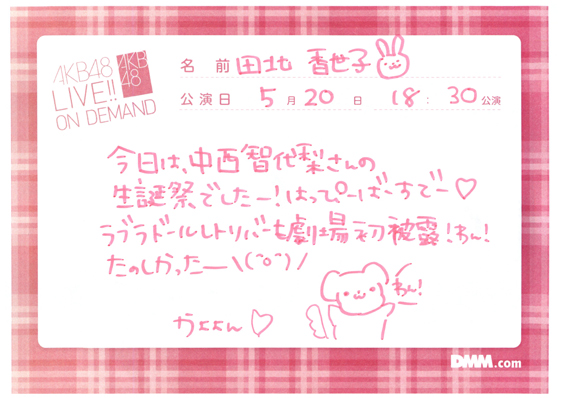 AKB48
LIVE!!
ON DEMAND
AKB
48
名 前 田北 香世子
公演日 5月20日 18:30公演
今日は、中西智代梨さんの
生誕祭でしたー!はっぴーばーすでー♡
ラブラドールレトリバーも劇場初披露!わん!
たのしかったー\(^o^)/
わん!
かよよん♡
DMM.com